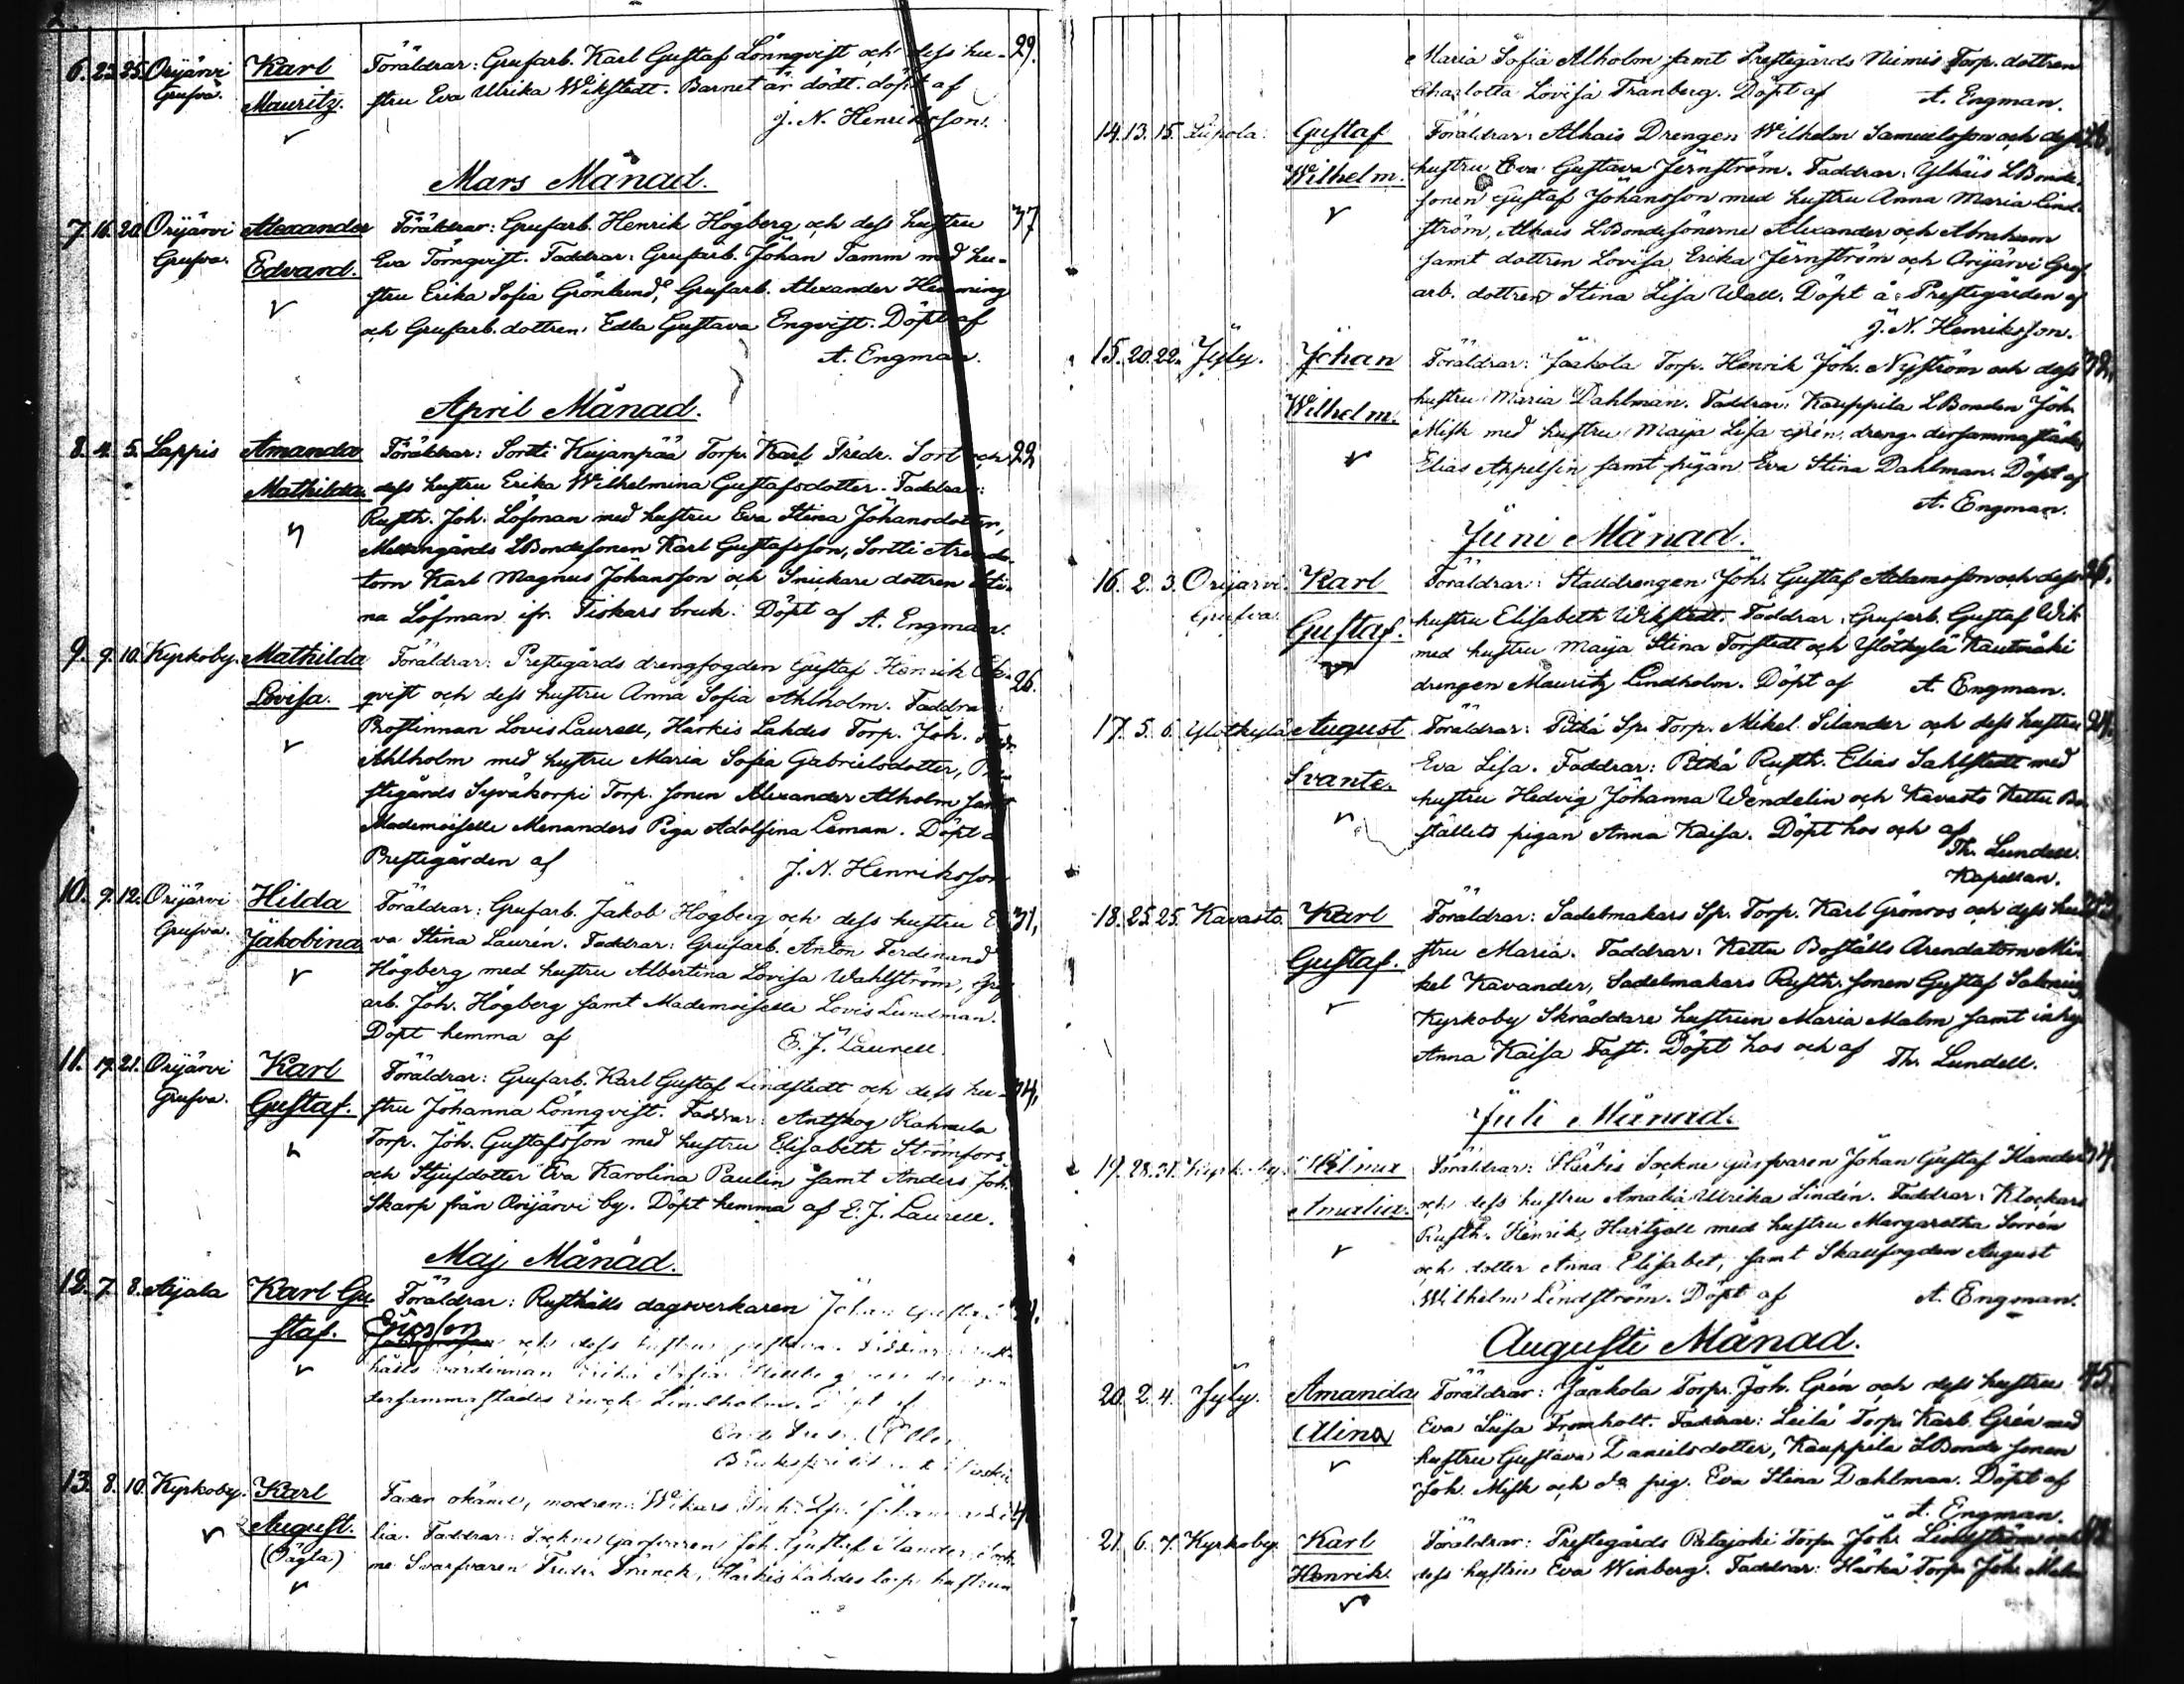 6. 23. 25. Orijärvi Karl Föräldrar: Grufarb. Karl Gustaf Lönnqvist och dess hu- 29.
Grufva. Mauritz. stru Eva Ulrika Wikstedt. Barnet är dödt. döpt af
J. N. Henriksson.
Mars Månad.
7. 16. 20. Orijärvi Alexander Föräldrar: Grufarb. Henrik Högberg och dess hustru 37
Grufva. Edvard. Eva Törnqvist. Faddrar: Grufarb. Johan Tamm med hu-
stru Erika Sofia Grönlund, Grufarb. Alexander Hemming
och Grufarb. dottren Edla Gustava Engvist. Döpt af
A. Engman.
April Månad.
8. 4. 5. Lappis Amanda Föräldrar: Sortti Kujanpää Torp. Karl Fredr. Sort och 22
Mathilda dess hustru Erika Wilhelmina Gustafsdotter. Faddrar:
Rusth. Joh. Löfman med hustru Eva Stina Johansdotter,
LBondesonen Karl Gustafsson, Sortti Arenda-
torn Karl Magnus Johansson och Snickare dottren Sti-
na Löfman ifr. Fiskars bruk. Döpt af A. Engman.
9. 9. 10. Kyrkoby. Mathilda Föräldrar: Prestegårds drengfogden Gustaf Henrik Ek-
Lovisa. qvist och dess hustru Anna Sofia Ahlholm. Faddrar: 26.
Prostinnan Lovis Laurell, Härkis Lahdes Torp. Joh. Fredr.
Ahlholm med hustru Maria Sofia Gabrielsdotter, Pre-
stegårds Syväkorpi Torp. sonen Alexander Alholm samt
Mademoiselle Menanders Piga Adolfina Leman. Döpt å
Prestegården af J. N. Henriksson
10. 9. 12. Orijärvi Hilda Föräldrar: Grufarb. Jakob Högberg och dess hustru E- 31,
Grufva. Jakobina va Stina Laurén. Faddrar: Grufarb. Anton Ferdinand
Högberg med hustru Albertina Lovisa Wahlström, Gruf
arb. Joh. Högberg samt Mademoiselle Lovis Lundman.
Döpt hemma af E. J. Laurell.
11. 19. 21. Orijärvi Karl Föräldrar: Grufarb. Karl Gustaf Lindstedt och dess hu- 34,
Grufva. Gustaf. stru Johanna Lönnqvist. Faddrar: Antskog
Torp. Joh. Gustafsson med hustru Elisabeth Strömfors
och Stjufdotter Eva Karolina Paulin samt Anders Joh.
Skarp från Orijärvi by. Döpt hemma af E. J. Laurell.
Maj Månad.
12. 7. 8. Aijala Karl Gu Föräldrar: Rusthålls dagsverkaren Johan Gustaf
staf. Ericsson och dess hustru Gustava. Faddrar: Rust-
hålls värdinnan Erika Sofia och drengen
dersammastädes Enoch Lindholm. Döpt af
13. 8. 10. Kyrkoby. Karl Fadren okänd, modren: Inh.
August. lia. Faddrar: Sockne garfvaren Joh. Gustaf Ilander, Sock-
(Oägta) ne Svarfvaren Fredr. Frünck, Härkis Lahdes torp. hustrun
Maria Sofia Alholm samt Prestegårds Niemis Torp. dottren
Charlotta Lovisa Tranberg. Döpt af A. Engman.
14. 13. 15. Gustaf Föräldrar: Alhais Drengen Wilhelm Samuelsson och dess
Wilhelm. hustru Eva Gustava Jernström. Faddrar: Ylhäis LBonde-
sonen Gustaf Johansson med hustru Anna Maria Lind-
ström, Alhais LBondesönerne Alexander och Abraham
samt dottren Lovisa Erika Jernström och Orijärvi Gruf
arb. dottren Stina Lisa Wall. Döpt å Prestegården af
J. N. Henriksson.
15. 20. 22. Jyly. Johan Föräldrar: Jaakola Torp. Henrik Joh. Nyström och dess 32,
Wilhelm. hustru Maria Dahlman. Faddrar: Kauppila LBonden Joh.
Misk med hustru Maija Lisa Grén, dreng dersammastädes
Elias Appelsin samt pigan Eva Stina Dahlman. Döpt af
A. Engman.
Juni Månad.
16. 2. 3. Orijärvi Karl Föräldrar: Stalldrengen Joh. Gustaf Adamsson och dess 26.
Grufva. Gustaf. hustru Elisabeth Wikstedt. Faddrar: Grufarb. Gustaf Wik
med hustru Maija Stina Torstedt och Ylötkylä Rautmäki
drengen Mauritz Lindholm. Döpt af A. Engman.
17. 5. 6. Ylötkylä August Föräldrar: Pitkä Sp. Torp. Mikel Silander och dess hustru 24.
Svante. Eva Lisa. Faddrar: Pitkä Rusth. Elias Sahlstedt med
hustru Hedvig Johanna Wendelin och Kavasto Kettu Bo-
ställets pigan Anna Kaisa. Döpt hos och af
Th. Lundell.
Kapellan.
18. 25. 25. Kavasto. Karl Föräldrar: Sadelmakars Sp. Torp. Karl Grönroos och dess hu-
Gustaf. stru Maria. Faddrar: Kettu Boställs Arendatorn Mi-
kel Kavander, Sadelmakars Rusth. sonen Gustaf
Kyrkoby Skräddare hustrun Maria Malm samt inhys
Anna Kaisa Fast. Döpt hos och af Th. Lundell.
Juli Månad.
19. 28. 31. Kyrkoby. Hilma Föräldrar: Härkis Sockne garfvaren Johan Gustaf Ilander 34
Amalia. och dess hustru Amalia Ulrika Lindén. Faddrar: Klockars
Rusth. Henrik Hartzell med hustru Margaretha Sorrén
och dotter Anna Elisabet, samt Skallfogden August
Wilhelm Lindström. Döpt af A. Engman.
Augusti Månad.
20. 2. 4. Jyly. Amanda Föräldrar: Jaakola Torp. Joh. Grén och dess hustru 45,
Alina Eva Lisa Fromholt. Faddrar: Leilä Torp. Karl Grén med
hustru Gustava Danielsdotter, Kauppila LBonde sonen
Joh. Misk och d:o pig. Eva Stina Dahlman. Döpt af
A. Engman.
21. 6. 7. Kyrkoby. Karl Föräldrar: Prestegårds Torp. Joh. Lindström och
Henrik. dess hustru Eva Winberg. Faddrar: Härkä Torp. Joh. Malm